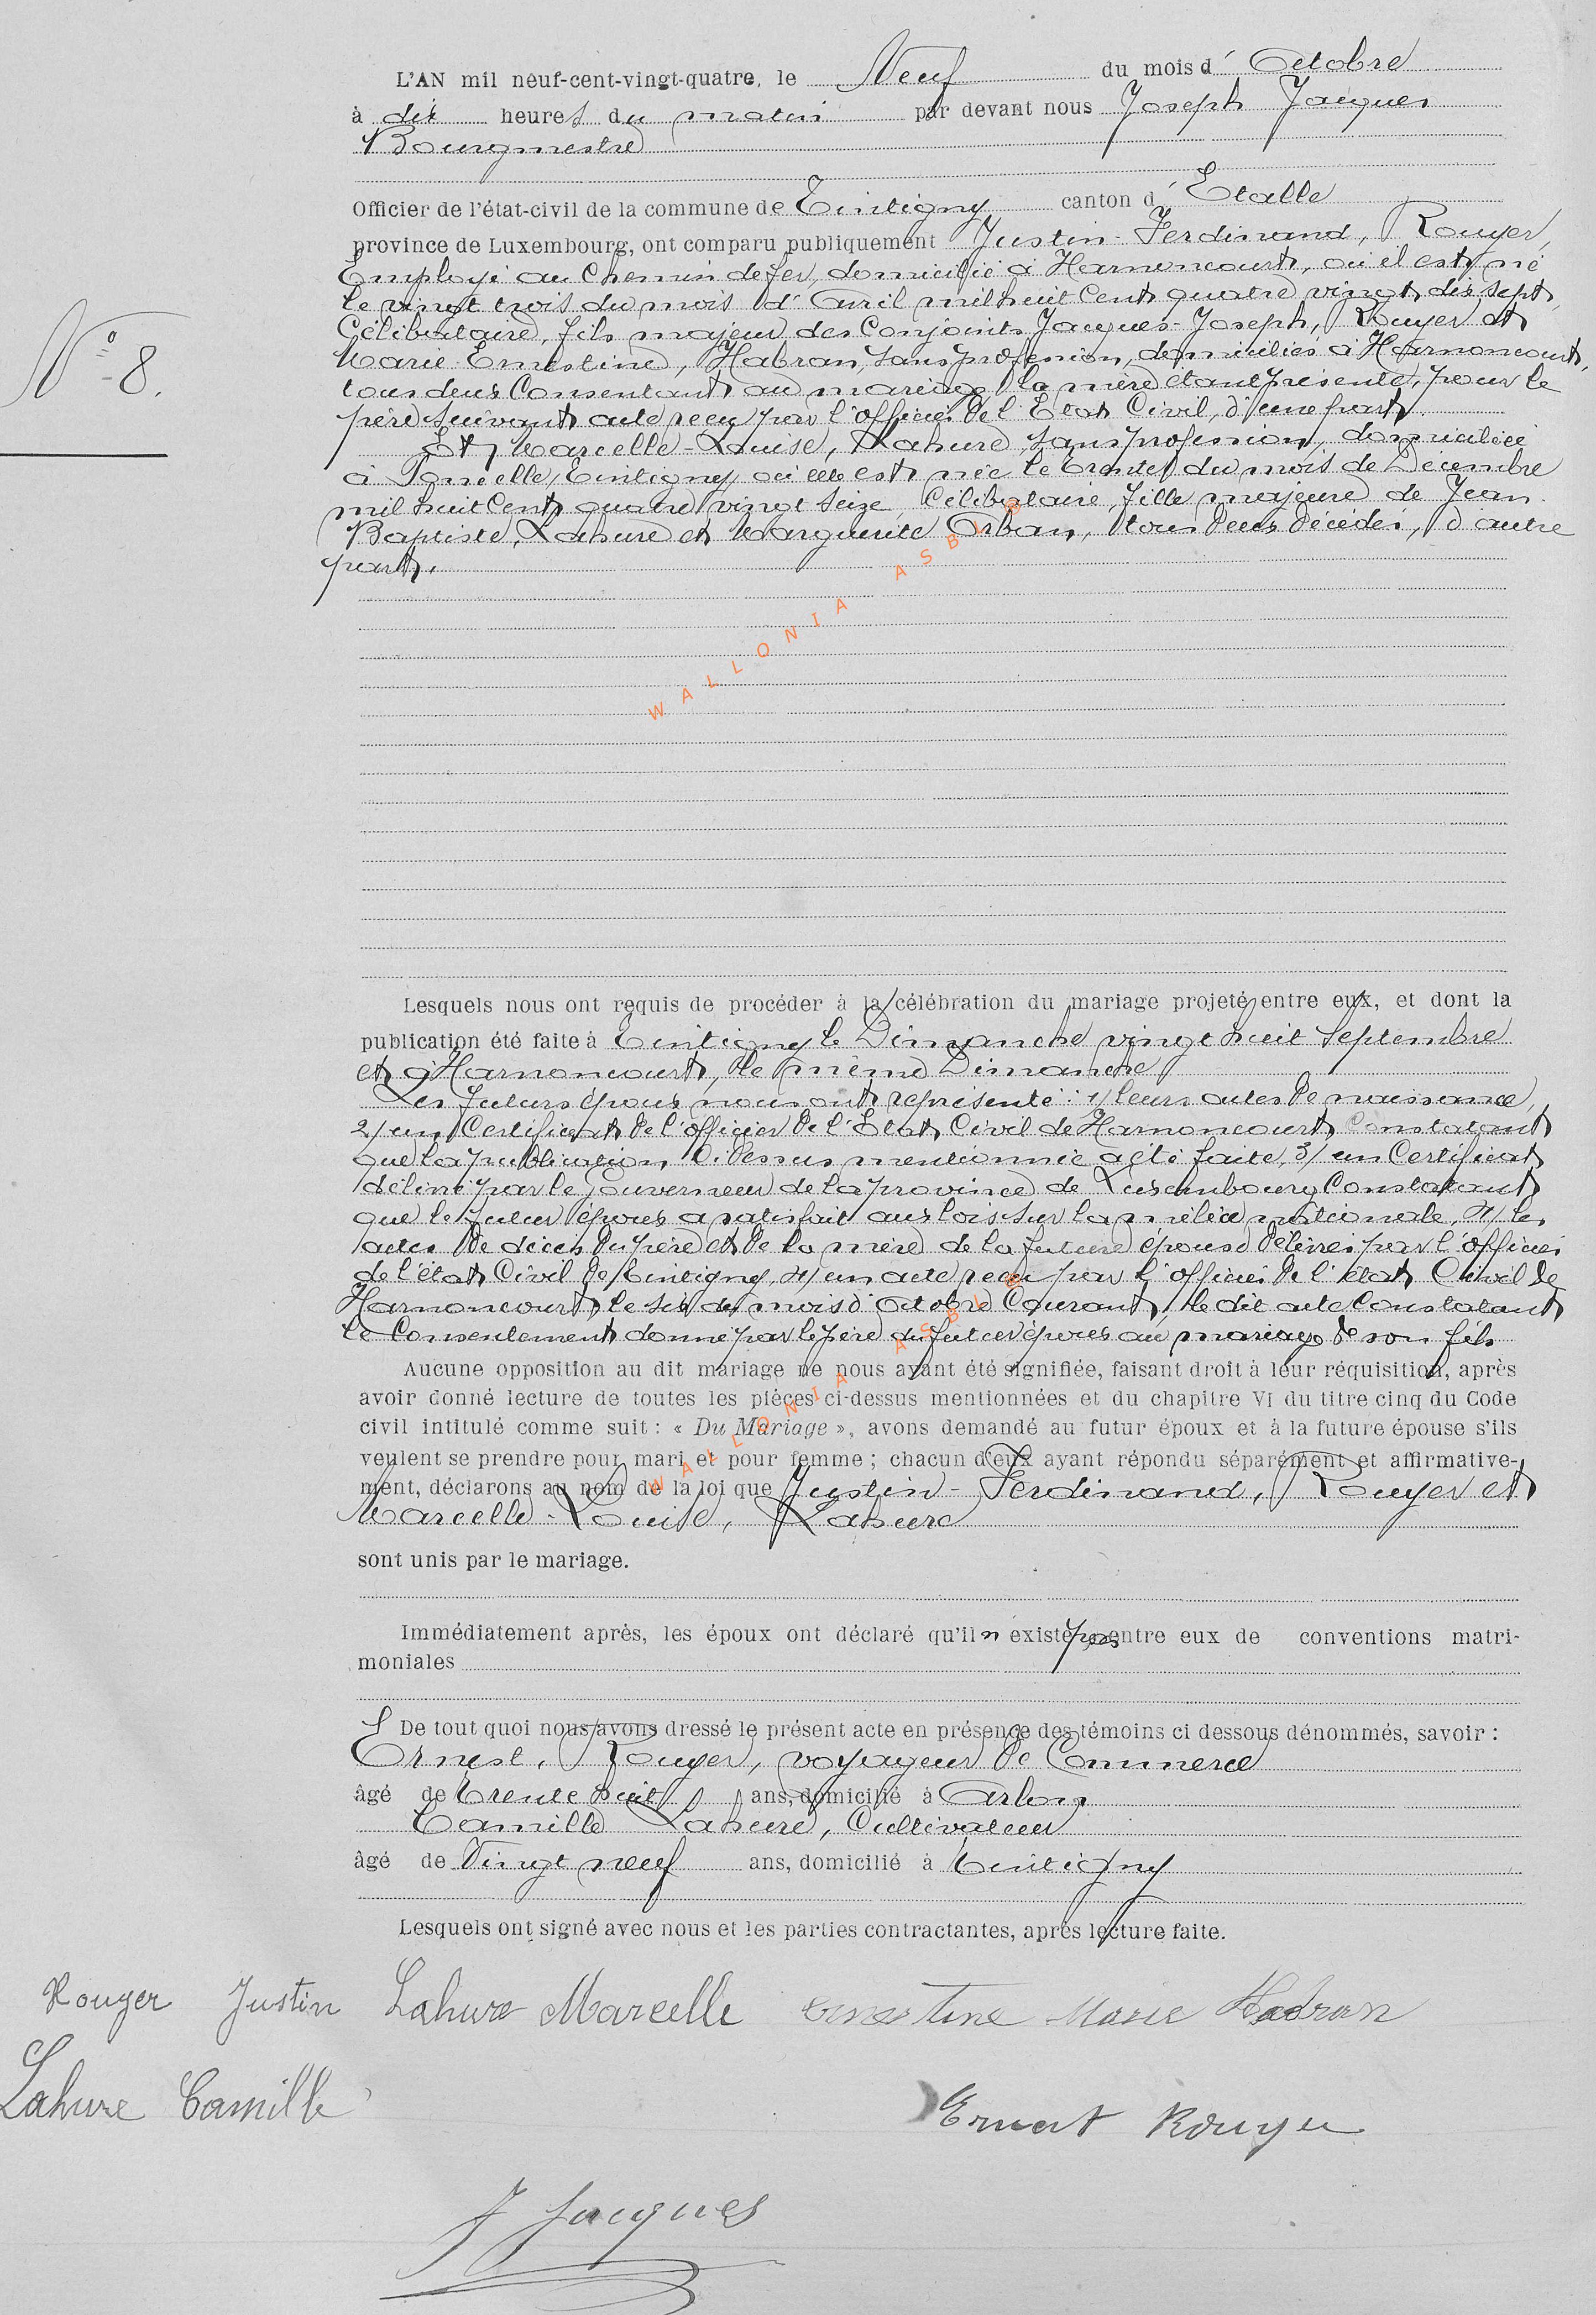 L'AN mil neuf-cent-vingt-quatre, le Neuf du mois d' Octobre
à dix heures du matin par devant nous Joseph Jacques
Bourgmestre
Officier de l'état-civil de la commune de Tintigny canton d' Etalle
province de Luxembourg, ont comparu publiquement Justin-Ferdinand, Rouyer,
Employé au Chemin de fer, domicilié à Harnoncourt, où il est né
le vingt trois du mois d'Avril mil huit Cent quatre vingt dix sept,
Célibataire, fils majeur des Conjoints Jacques-Joseph, Rouyer et
Marie-Ernestine, Habran, sans profession, domiciliés à Harnoncourt,
tous deux Consentant au mariage, la mère étant présente, pour le
père suivant acte reçu par l'officier de l'Etat Civil, d'une part.
Et Marcelle-Louise, Lahure, sans profession, domiciliée
à Poncelle, Tintigny, où elle est née le trente du mois de Décembre
mil huit Cent quatre vingt seize, Célibataire, fille majeure de Jean
Baptiste, Lahure et Marguerite Orban, tous deux décédés, d'autre
part.
WALLONIA ASBL ©
N° 8.
Lesquels nous ont requis de procéder à la célébration du mariage projeté entre eux, et dont la
publication été faite à Tintigny le Dimanche vingt huit Septembre
et à Harnoncourt, le même Dimanche
Les futurs époux nous ont représenté : 1/ leurs actes de naissance,
2/ un Certificat de l'officier de l'Etat Civil de Harnoncourt Constatant
que la publication Ci-dessus mentionnée a été faite, 3/ un Certificat
délivré par le Gouverneur de la province de Luxembourg Constatant
que le futur époux a satisfait aux lois sur la milice nationale, 4/ les
actes de décès du père et de la mère de la future épouse délivrés par l'officier
de l'état Civil de Tintigny, 4/ un acte reçu par l'officier de l'état Civil de
Harnoncourt, le six du mois d'octobre Courant, le dit acte Constatant
le Consentement donné par le père du futur époux au mariage de son fils
Aucune opposition au dit mariage ne nous ayant été signifiée, faisant droit à leur réquisition, après
avoir donné lecture de toutes les pièces ci-dessus mentionnées et du chapitre VI du titre cinq du Code
civil intitulé comme suit : « Du Mariage », avons demandé au futur époux et à la future épouse s'ils
veulent se prendre pour mari et pour femme ; chacun d'eux ayant répondu séparément et affirmative-
ment, déclarons au nom de la loi que Justin-Ferdinand, Rouyer et
Marcelle-Louise, Lahure
WALLONIA ASBL ©
sont unis par le mariage.
Immédiatement après, les époux ont déclaré qu'il n'existe pas entre eux de conventions matri-
moniales
De tout quoi nous avons dressé le présent acte en présence des témoins ci dessous dénommés, savoir :
Ernest, Rouyer, voyageur de Commerce
âgé de trente huit ans, domicilié à Arlon
Camille Lahure, Cultivateur
âgé de Vingt neuf ans, domicilié à Tintigny
Lesquels ont signé avec nous et les parties contractantes, après lecture faite.
Rouyer Justin Lahure Marcelle Ernestine Marie Habran
Lahure Camille
Ernest Rouyer
J Jacques